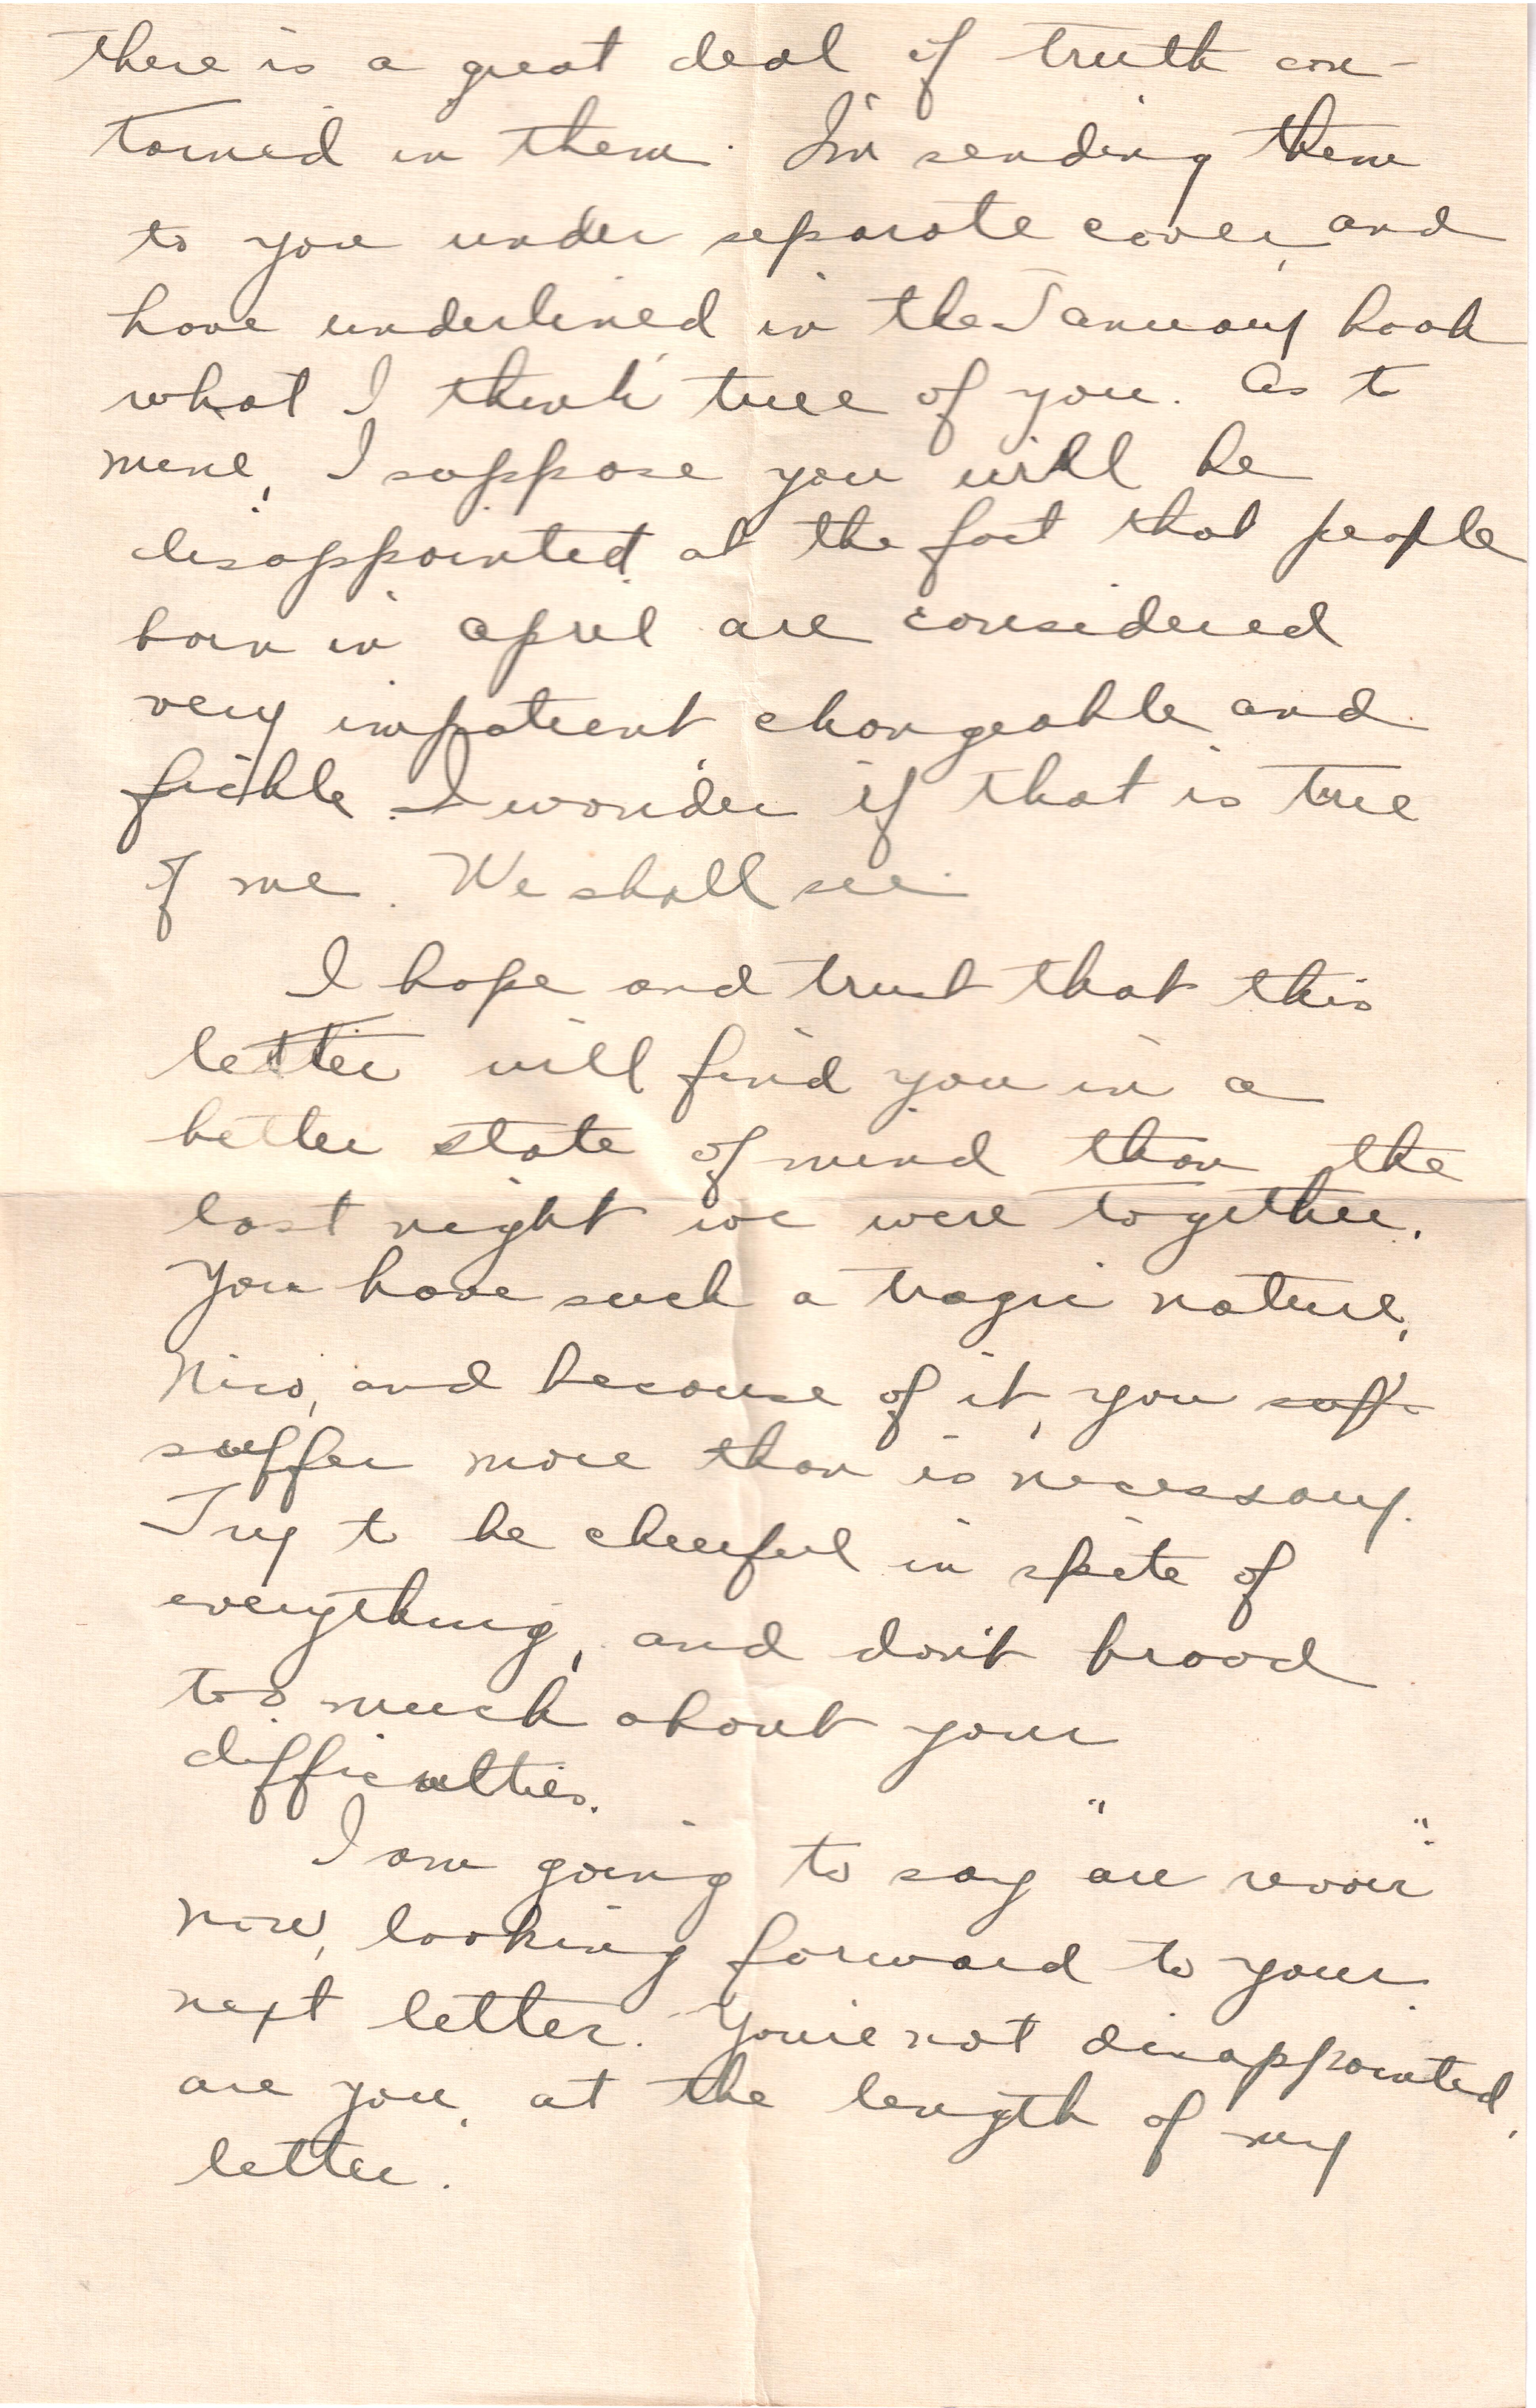 there is a great deal of truth con-
tained in them. I'm sending them
to you under separate cover, and
have underlined in the January book
what I think true of you. As to
mine, I suppose you will be
disappointed at the fact that people
born in April are considered
very impatient changeable and
fickle. I wonder if that is true
of me. We shall see.
I hope and trust that this
letter will find you in a
better state of mind than the
last night we were together.
You have such a tragic nature,
Nico, and because of it, you suff-
suffer more than is necessary.
Try to be cheerful in spite of
everything, and don't brood
too much about your
difficulties.
I am going to say "au revoir"
now, looking forward to your
next letter. You're not disappointed,
are you, at the length of my
letter.